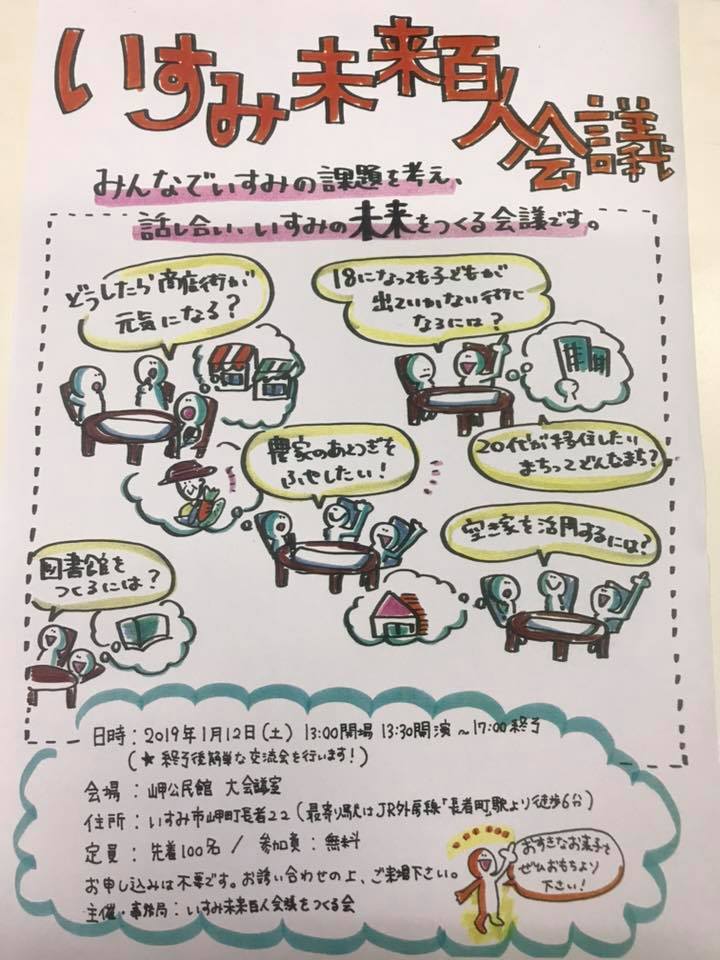 いすみ未来百人会議
みんなでいすみの課題を考え、
話し合い、いすみの未来をつくる会議です。
どうしたら商店街が
元気になる?
18になっても子どもが
出ていかない街に
なるには?
20代が移住したい
まちってどんなまち?
農家のあとつぎを
ふやしたい!
空き家を活用するには?
図書館を
つくるには?
日時:2019年1月12日(土) 13:00開場 13:30開演 ~17:00終了
(★ 終了後簡単な交流会を行います!)
会場:岬公民館 大会議室
住所:いすみ市岬町長者22(最寄り駅はJR外房線「長者町駅」より徒歩6分)
定員:先着100名 / 参加費:無料
お申し込みは不要です。お誘い合わせの上、ご来場下さい。
主催・事務局:いすみ未来百人会議をつくる会
おすきなお菓子を
ぜひおもちより
下さい!